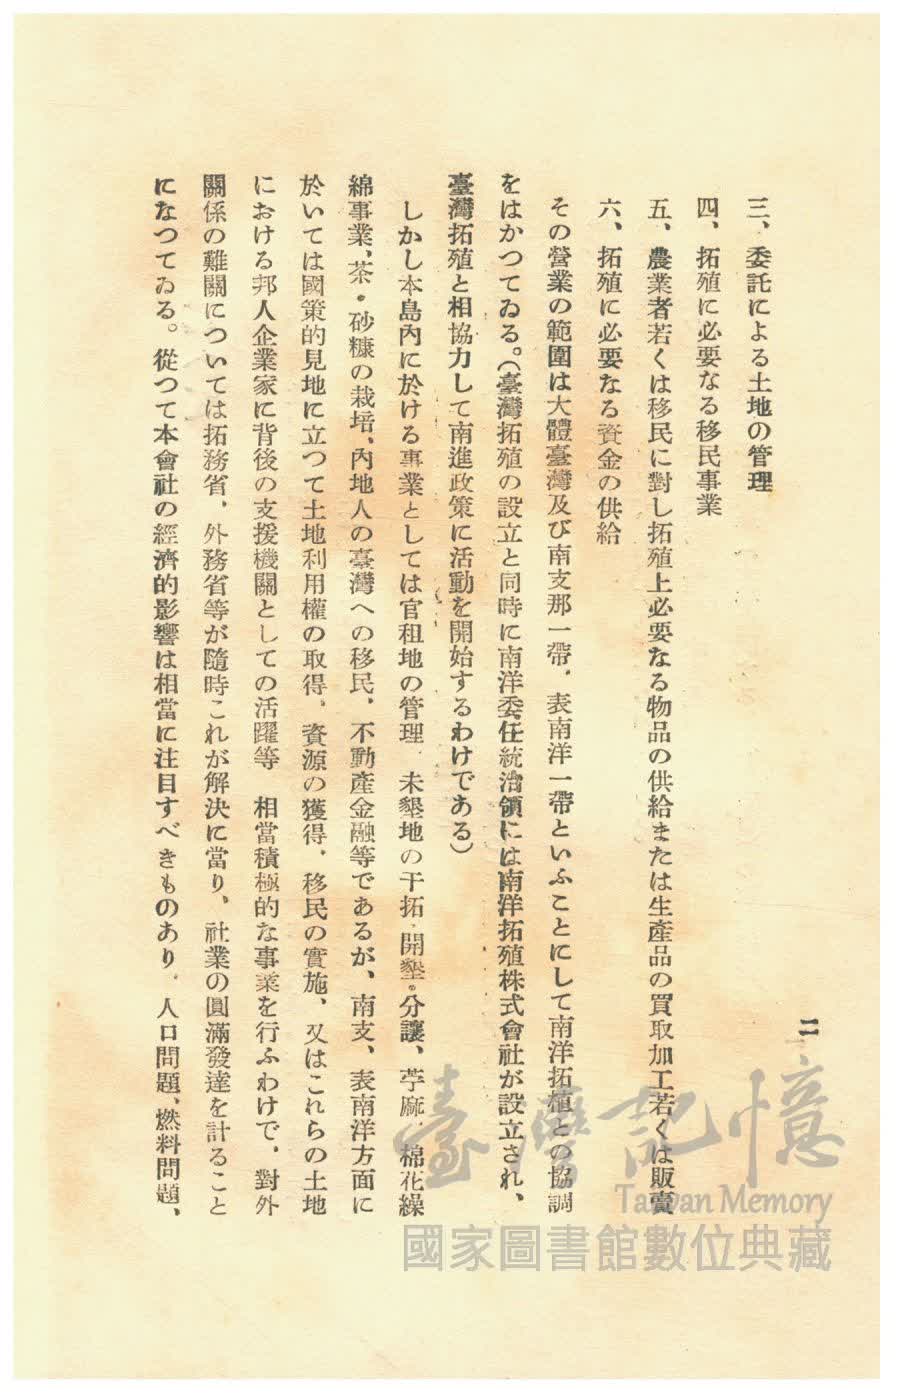 二
三、委託による土地の管理
四、拓殖に必要なる移民事業
五、農業者若くは移民に對し拓殖上必要なる物品の供給または生產品の買取加工若くは販賣
六、拓殖に必要なる資金の供給
その營業の範圍は大體臺灣及び南支那一帶、表南洋一帶といふことにして南洋拓植との協調
をはかつてゐる。(臺灣拓殖の設立と同時に南洋委任統治領には南洋拓殖株式會社が設立され、
臺灣拓殖と相協力して南進政策に活動を開始するわけである)
しかし本島內に於ける事業としては官租地の管理、未墾地の干拓、開墾。分讓、苧麻、棉花繰
綿事業、茶。砂糠の栽培、內地人の臺灣への移民、不動產金融等であるが、南支、表南洋方面に
於いては國策的見地に立つて土地利用權の取得、資源の獲得、移民の實施、又はこれらの土地
における邦人企業家に背後の支援機關としての活躍等 相當積極的な事業を行ふわけで、對外
關係の難關については拓務省、外務省等が隨時これが解決に當り、社業の圓滿發達を計ること
になつてゐる。從つて本會社の經濟的影響は相當に注目すべきものあり、人口問題、燃料問題、
臺灣記憶
Taiwan Memory
國家圖書館數位典藏